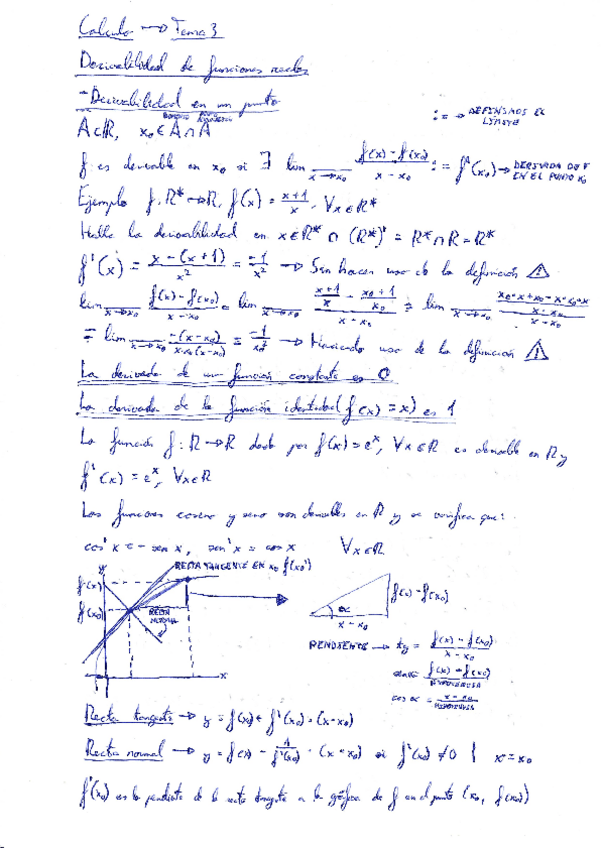 Calculo → Tema 3
Derivabilidad de funciones reales
- Derivabilidad en un punto
:= → DEFINIMOS EL LÍMITE
A⊂ℝ, x₀∈A∩A'
f es derivable en x₀ si ∃ lim x→x₀ (f(x) - f(x₀))/(x - x₀) := f'(x₀) → DERIVADA DE F EN EL PUNTO x₀
Ejemplo f: ℝ* → ℝ, f(x) = (x+1)/x, ∀x∈ℝ*
Halla la derivabilidad en x∈ℝ* ∩ (ℝ*)' = ℝ*∩ℝ = ℝ*
f'(x) = (x - (x+1))/x² = -1/x² → Sin hacer uso de la definición ⚠
lim x→x₀ (f(x) - f(x₀))/(x - x₀) = lim x→x₀ ((x+1)/x - (x₀+1)/x₀)/(x - x₀) = lim x→x₀
= lim x→x₀ -(x-x₀)/(x·x₀(x-x₀)) = -1/x₀² → Haciendo uso de la definición ⚠
La derivada de una función constante es 0
La derivada de la función identidad (f(x) = x) es 1
La función f: ℝ→ℝ dada por f(x) = eˣ, ∀x∈ℝ es derivable en ℝ y
f'(x) = eˣ, ∀x∈ℝ
Las funciones coseno y seno son derivables en ℝ y se verifica que:
cos' x = - sen x, sen' x = cos x ∀x∈ℝ
y
RECTA TANGENTE EN x₀ f(x₀)
f(x)
f(x₀)
RECTA NORMAL
x
f(x) - f(x₀)
α
x - x₀
PENDIENTE → tg = (f(x) - f(x₀))/(x - x₀)
sen α = (f(x) - f(x₀))/HIPOTENUSA
cos α = (x - x₀)/HIPOTENUSA
Recta tangente → y = f(x₀) + f'(x₀)·(x-x₀)
Recta normal → y = f(x) - 1/f'(x₀) · (x - x₀) si f'(x₀) ≠ 0 | x = x₀
f'(x₀) es la pendiente de la recta tangente a la gráfica de f en el punto (x₀, f(x₀))